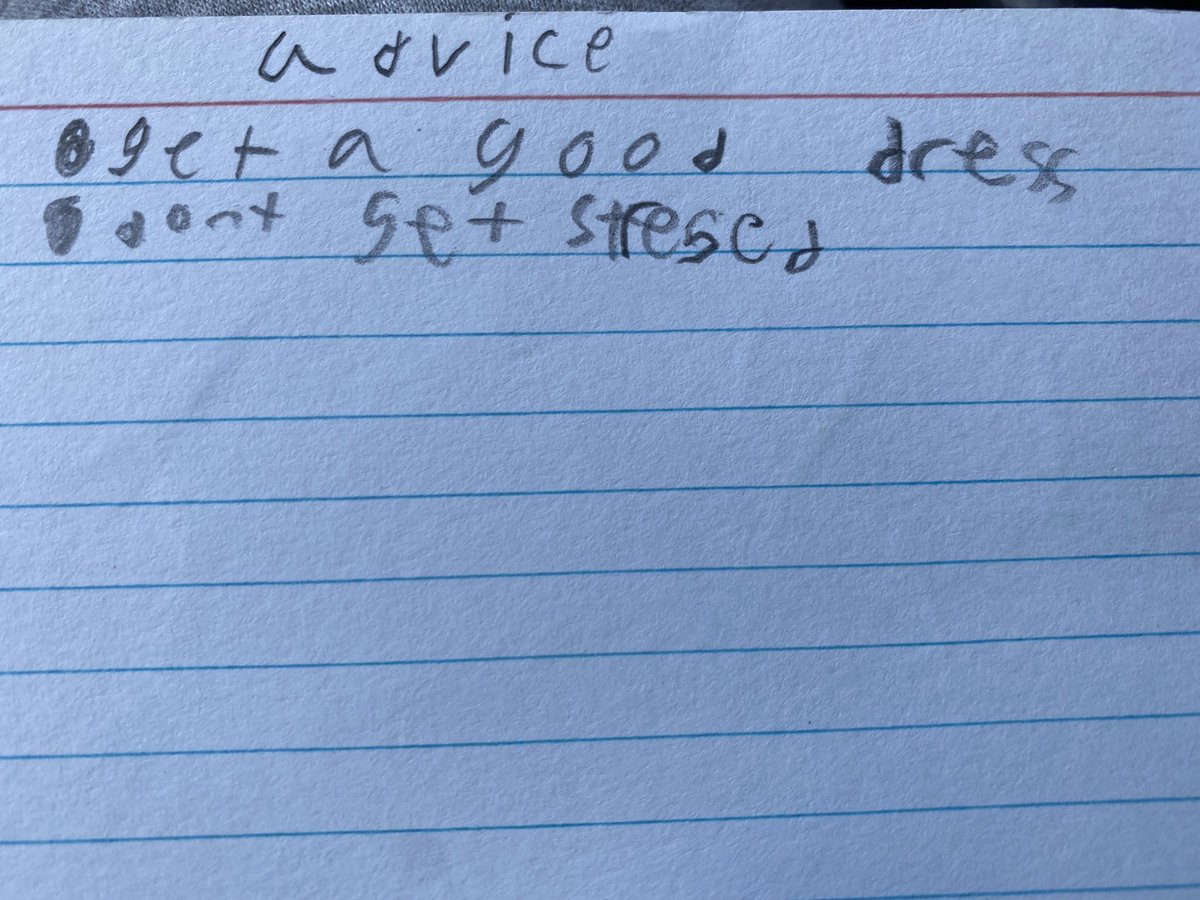 advice
• get a good dress
• dont get stresed